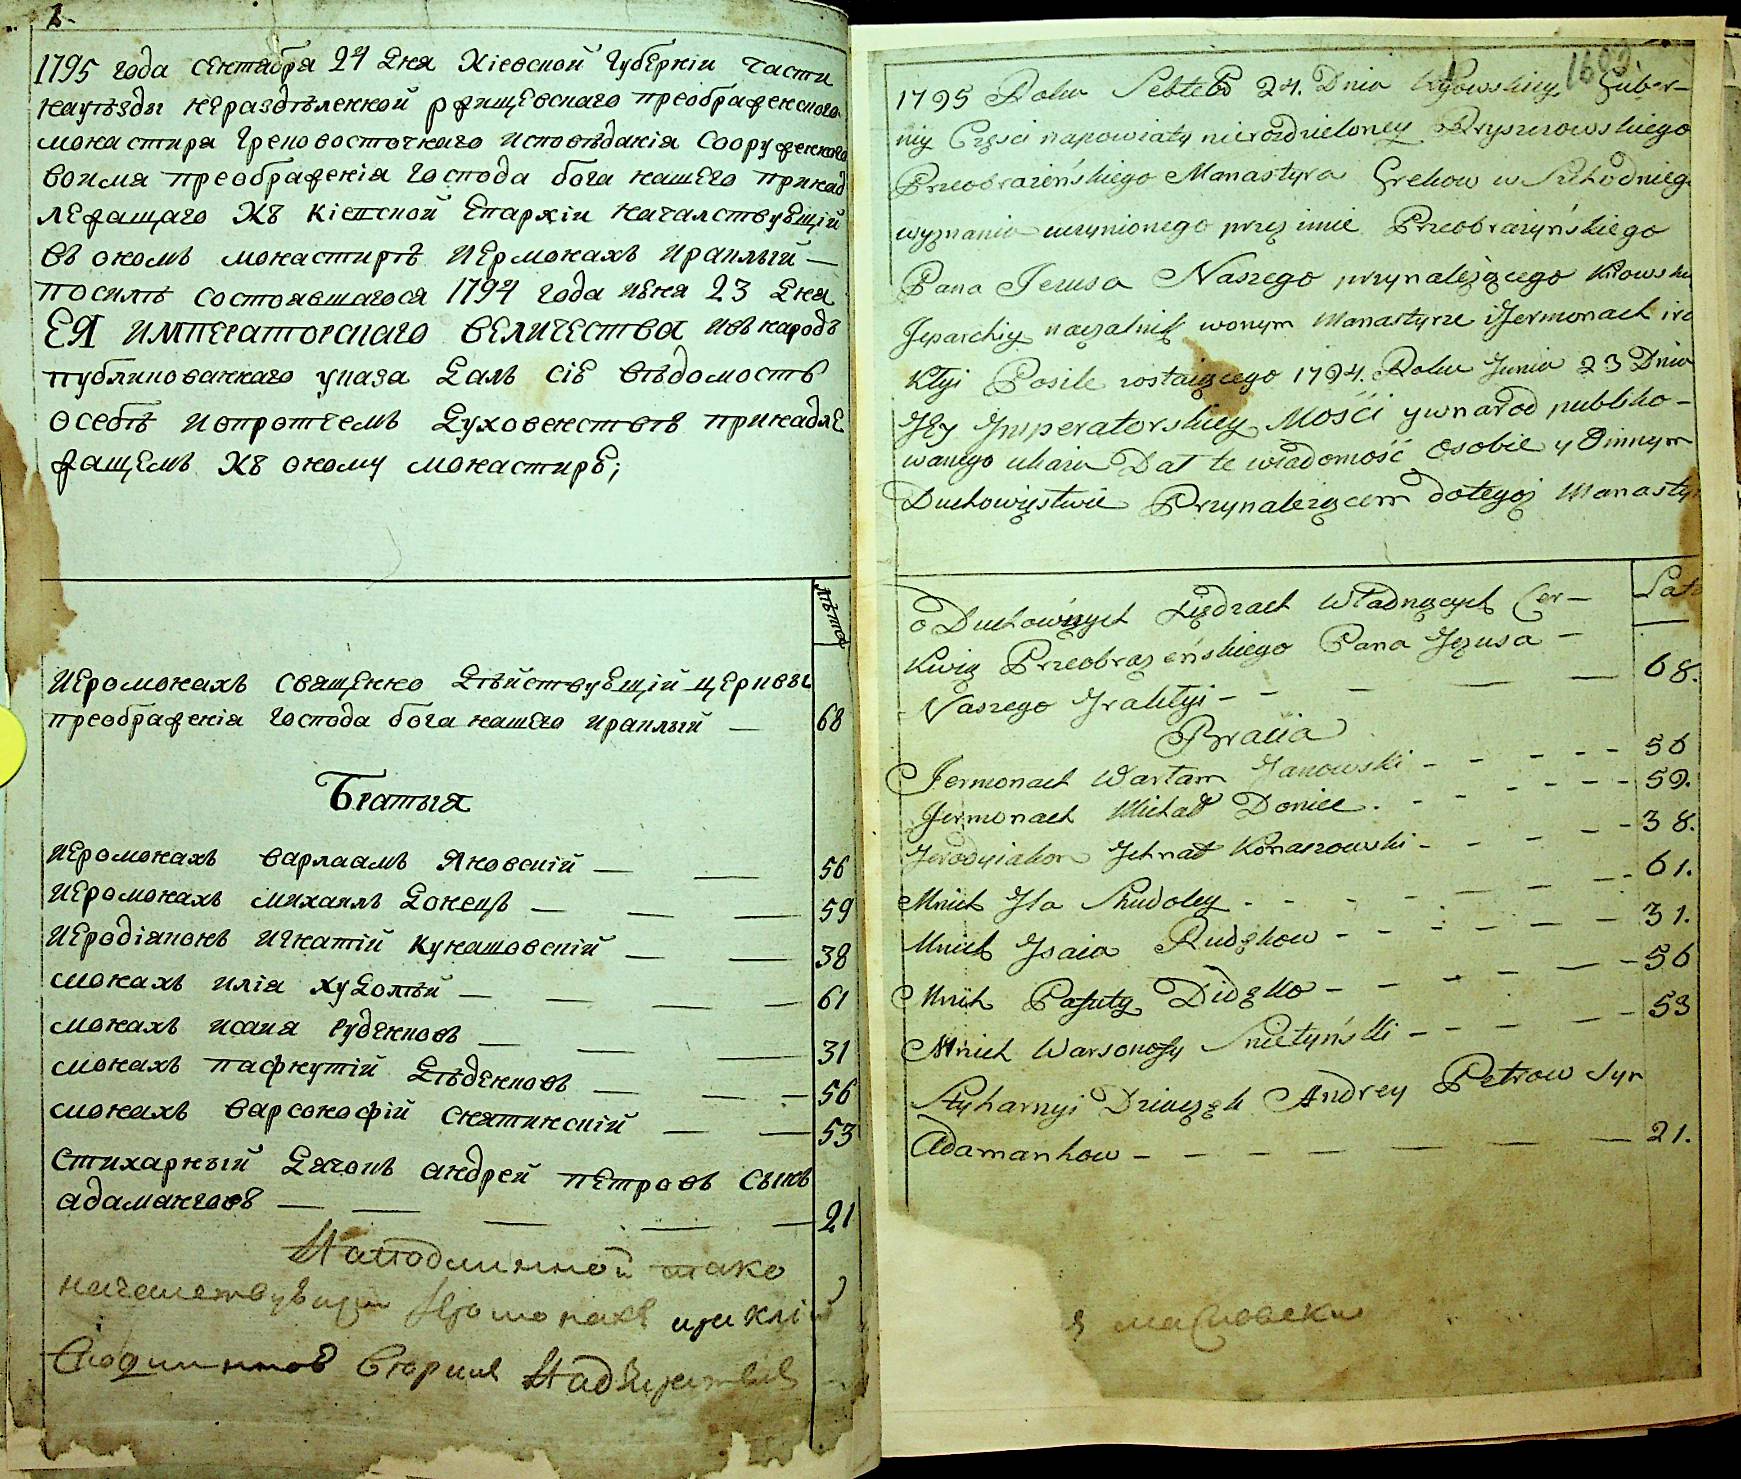 1795 года сентабра 24 дня Кіевской Губерніи части
науѣзды нераздѣленной ржищевскаго преображенскаго
монастира Грековосточнаго исповѣданія сооруженнаго
воимя преображенія Господа бога нашего принад
лежащаго Къ Кіевской Епархіи началствующій
въ ономъ монастирѣ Иермонахъ Ираклый —
посилѣ состоявшагося 1794 года июня 23 дня
ЕЯ ИМПЕРАТОРСКАГО ВЕЛИЧЕСТВА ивъ народъ
публикованнаго указа далъ сію вѣдомость
осебѣ ипротчемъ духовенствѣ принадле
жащемъ Къ оному монастирю;
лѣта
Иеромонахъ священно дѣйствующій церквы
преображенія Господа бога нашего Ираклый — 68
Братыя
Иеромонахъ варлаамъ Яновскій — — 56
Иеромонахъ михаилъ Донецъ — — — 59
Иеродіяконъ Игнатій Кунашовскій — — 38
монахъ илія худолѣй — — — — 61
монахъ исаия руденковъ — — — 31
монахъ пафнутій Дѣденковъ — — — 56
монахъ варсонофій снятинскій — — 53
стихарный Дячокъ андрей петровъ сынъ
адаманговъ — — — — — — 21
Наподлинной тако
Иеромонахъ ираклій
1795 Roku Sebtebr 24. Dnia Kijowskiey Guber-
nij Częsci napowiaty nierozdzieloney Rzyszczowskiego
Przeobrażeńskiego Manastyra Grekow w Schodnieg
wyznania uczynionego przez imie Przeobrażyńskiego
Pana Jezusa Naszego przynależącego Kiiowski
Jeparchiy naczalnik wonym Manastyrze iJermonach ira
Kłyi Posile zostaiącego 1794. Roku Junia 23 Dnia
JEy Jmperatorskiey Mości ywnarod publiko-
wanego ukazu Dał te wiadomość Osobie y Oinnym
Duchowięstwie Przynalezącem dotegoż Manasty
o Duchownych Xiędzach Władnących Cer- Lata
Kwią Przeobrażeńskiego Pana Jezusa -
Naszego Jrakłyi - - — — — 68.
Bracia
Jermonach Warłam Janowski - - - - - 56
Jermonach Michał Doniec. - - - - - - 59.
Jerodyiakon Jchnat Konaszowski - - - — - 38.
Mnich Jla Chudoley - - - - — — - 61.
Mnich Jsaia Rudękow - - - - - — - 31.
Mnich Pafnty Didęko - - - - — — - 56
Mnich Warsonofy Snietyński - - - - — - 53
Styharnyi Dziaczęk Andrey Petrow Syn
Adamankow - - - - — — — 21.